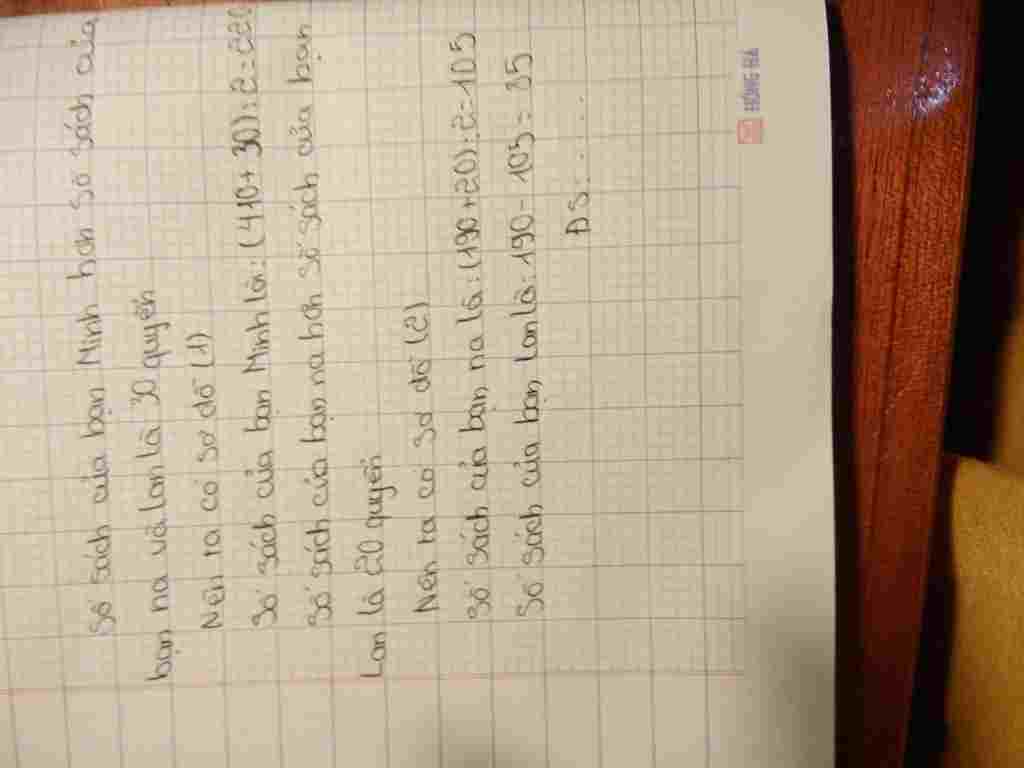 Số sách của bạn Minh hơn số sách của
bạn na và lan là 30 quyển
Nên ta có sơ đồ (1)
Số sách của bạn Minh là: (410+30):2=220
Số sách của bạn na hơn số sách của bạn
Lan là 20 quyển
Nên ta có sơ đồ (2)
Số sách của bạn na là: (190+20):2=105
Số sách của bạn lan là: 190-105=85
ĐS:.....
HỒNG HÀ